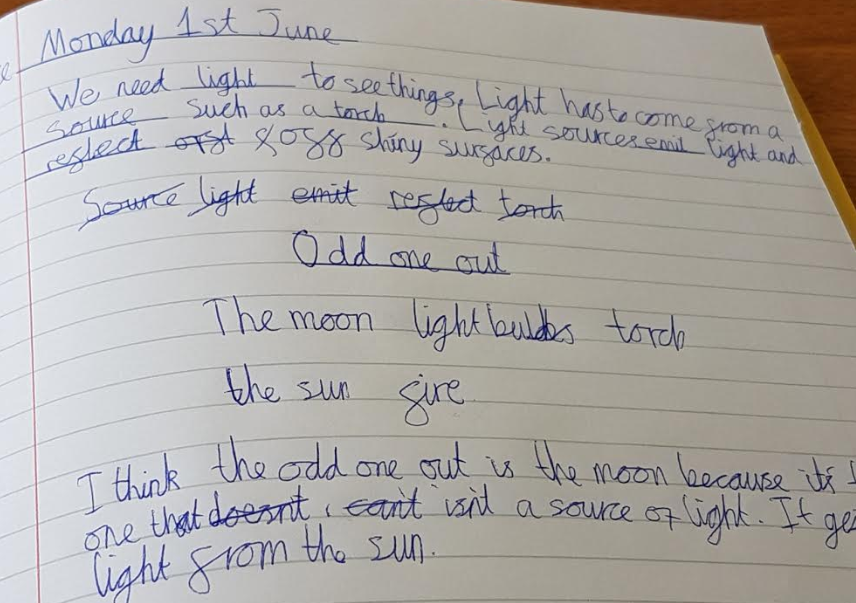 Monday 1st June
We need light to see things. Light has to come from a
source such as a torch. Light sources emit light and
reflect off shiny surfaces.
Source light emit reflect torch
Odd one out
The moon light bulbs torch
the sun fire
I think the odd one out is the moon because it's
one that doesn't, can't isn't a source of light. It
light from the sun.